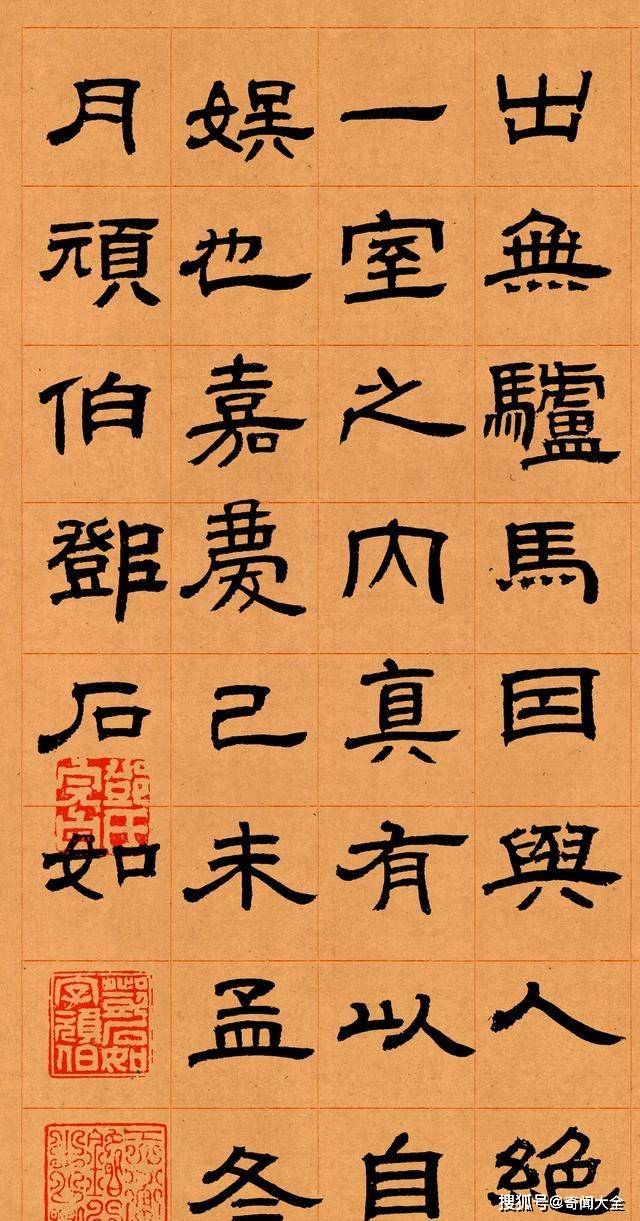 出無驢馬因與人絕
一室之内真有以自
娛也嘉慶己未孟冬
月頑伯鄧石如
鄧氏完白
鄧石如字頑伯
搜狐号@奇闻大全